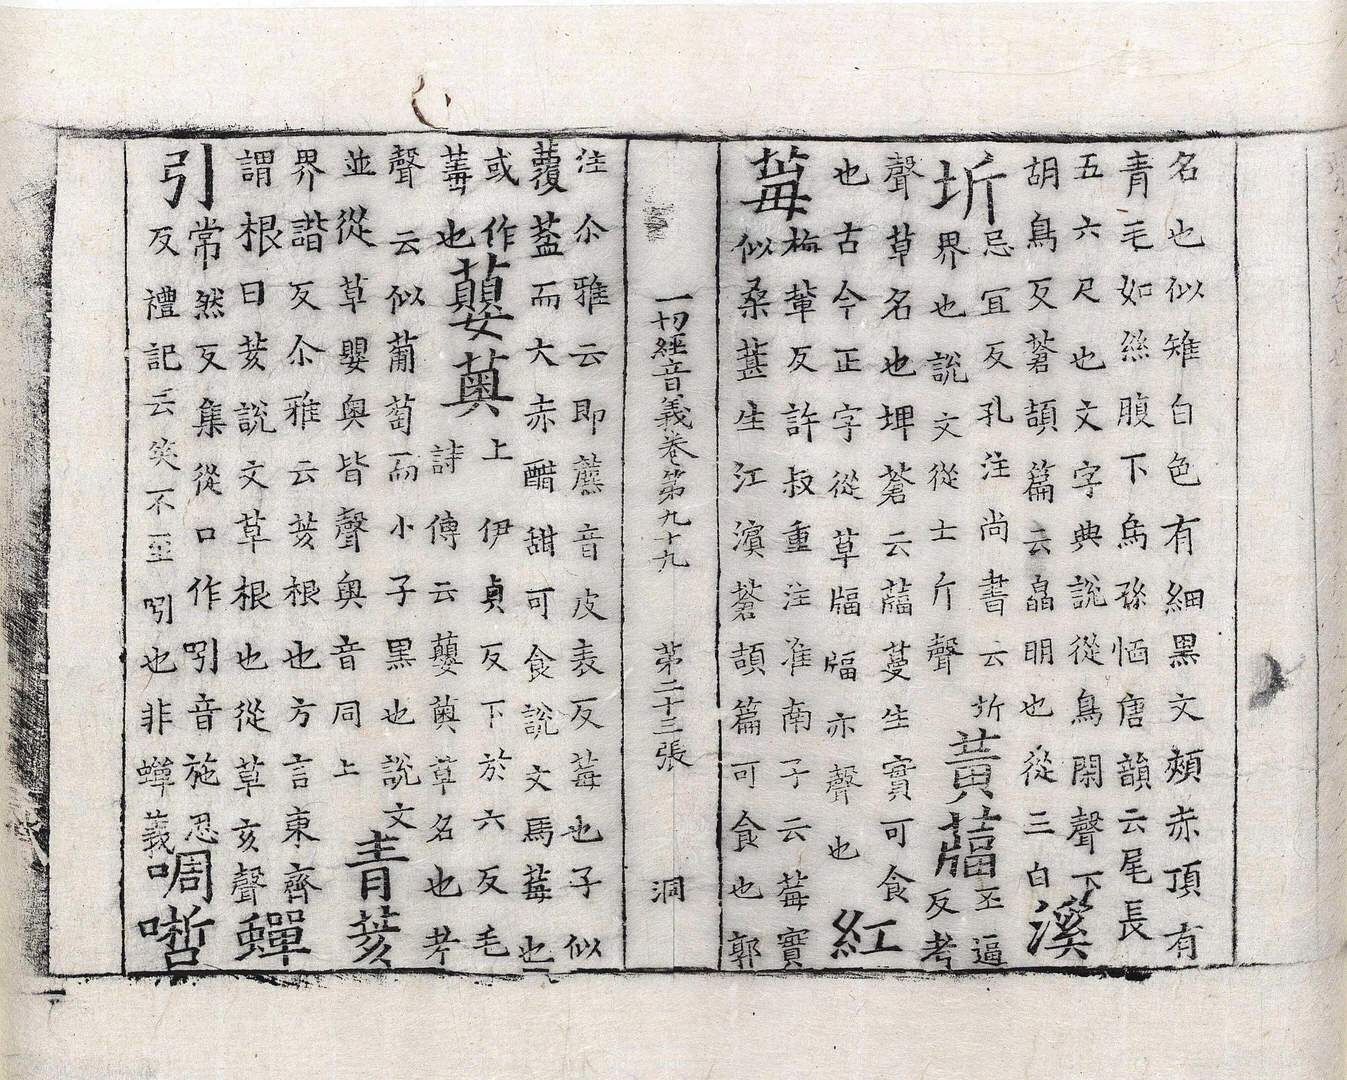 名也似雉白色有細黑文頰赤頂有
青毛如絲腹下烏孫愐唐韻云尾長
五六尺也文字典說從鳥閑聲下
胡鳥反蒼頡篇云皛明也從三白 溪
圻 忌冝反孔注尚書云圻
界也說文從士斤聲 黃 丕逼
反考
聲草名也埤蒼云蔓生實可食
也古今正字從草亦聲也 紅
莓 梅輩反許叔重注淮南子云莓實
似桑葚生江濱蒼頡篇可食也郭
一切經音義卷第九十九 第二十三張 洞
注尒雅云即藨音皮表反莓也子似
覆葢而大赤醋甜可食說文馬莓也
或作
也 蘡薁 上伊貞反下於六反毛
詩傳云蘡薁草名也考
聲云似葡萄而小子黑也說文
並從草嬰奧皆聲奧音同上 青荄
界諧反尒雅云荄根也方言東齊
謂根曰荄說文草根也從草亥聲 蟬
引 常然反集從口作吲音施忍
反禮記云笑不至吲也非蟬義 啁嘒